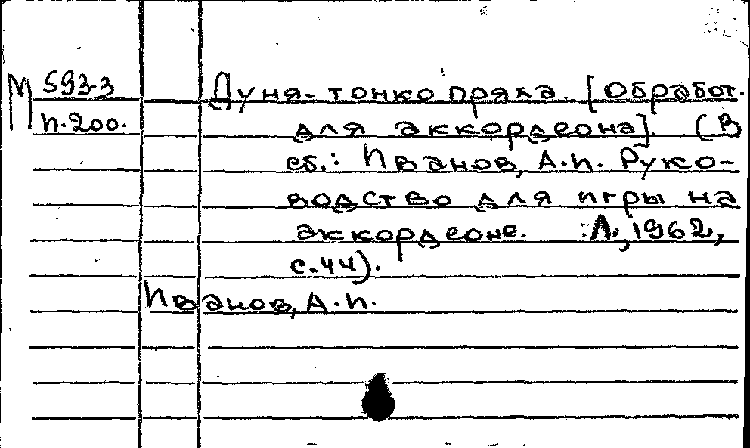 М 593-3
И-200.
Дуня-тонкопряха. [Обработ.
для аккордеона]. (В
сб.: Иванов, А.И. Руко-
водство для игры на
аккордеоне. Л., 1962,
с.44).
Иванов, А.И.